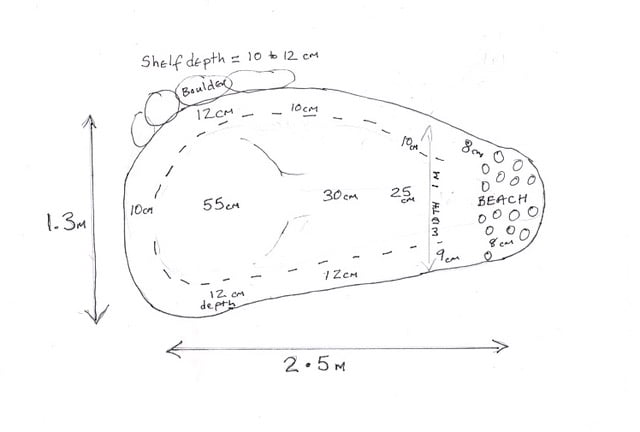 Shelf depth = 10 to 12 cm
Boulder
12cm
10cm
10cm
8cm
1.3M
10cm
55cm
30cm
25
cm
WIDTH 1M
BEACH
8cm
9cm
12cm
12 cm
depth
2.5M